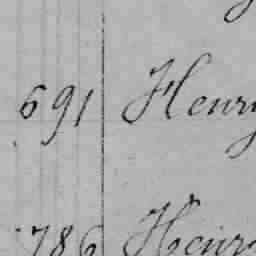 691 Henry
786 Henry